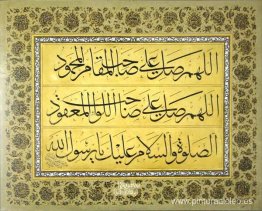 اللهم صل على صاحب المقام المحمود
اللهم صل على صاحب اللواء المعقود
الصلوة والسلام عليك يا رسول الله
www.pinturasoleo.us